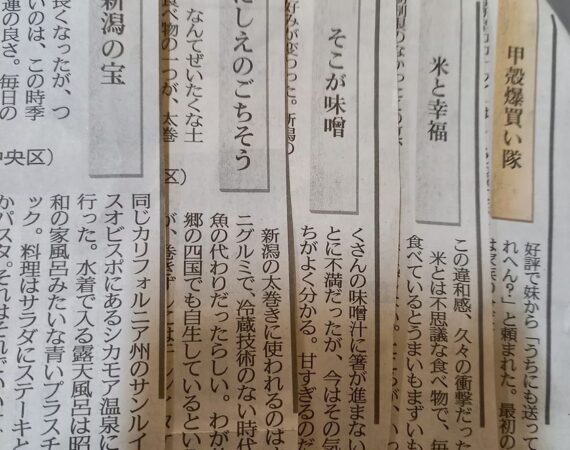 甲殻爆買い隊
好評で妹から「うちにも送って
れへん?」と頼まれた。最初の
米と幸福
この違和感、久々の衝撃だった
米とは不思議な食べ物で、毎
食べているとうまいもまずいも
そこが味噌
くさんの味噌汁に箸が進まない
とに不満だったが、今はその気
ちがよく分かる。甘すぎるのだ
にしえのごちそう
新潟の太巻きに使われるのは
ニグルミで、冷蔵技術のない時代
魚の代わりだったらしい。わが
郷の四国でも自生しているという
なんてぜいたくな土
食べ物の一つが、太巻
区)
新潟の宝
同じカリフォルニア州のサンルイ
スオビスポにあるシカモア温泉に
行った。水着で入る露天風呂は昭
和の家風呂みたいな青いプラスチ
ック。料理はサラダにステーキと
かパスタ。それはそれでいい
長くなったが、つ
いのは、この時季
運の良さ。毎日の
中央区)